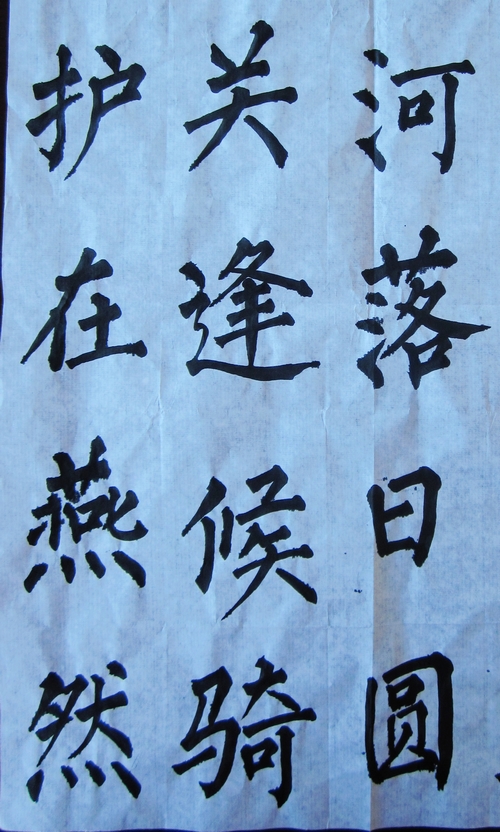 河落日圆
关逢候骑
护在燕然